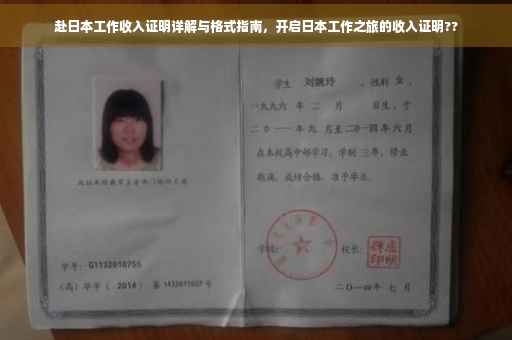 赴日本工作收入证明详解与格式指南，开启日本工作之旅的收入证明??
学生 刘婉玲 ，性别 女 ，
一九九六 年 二 月 日生，于
二0一一 年 九 月至 二0一四 年 六 月
在本校高中部学习，学制 三 年，修业
期满，成绩合格，准予毕业。
学号：G1132010755
（高）毕字（ 2014 ）第 1432011027 号
校长：
二〇一四年 七 月